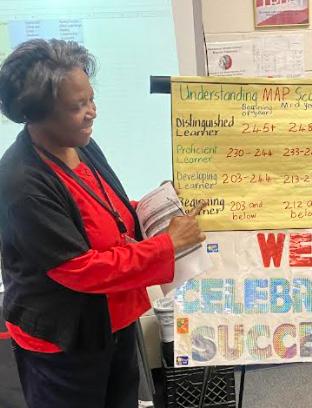 Understanding MAP Sco
Beginning of year
Mid ye
Distinguished Learner 245+ 248
Proficient Learner 230-244 233-2
Developing Learner 203-244 213-2
Beginning Learner 203 and below 212 a belo
WE
CELEBR
SUCCE